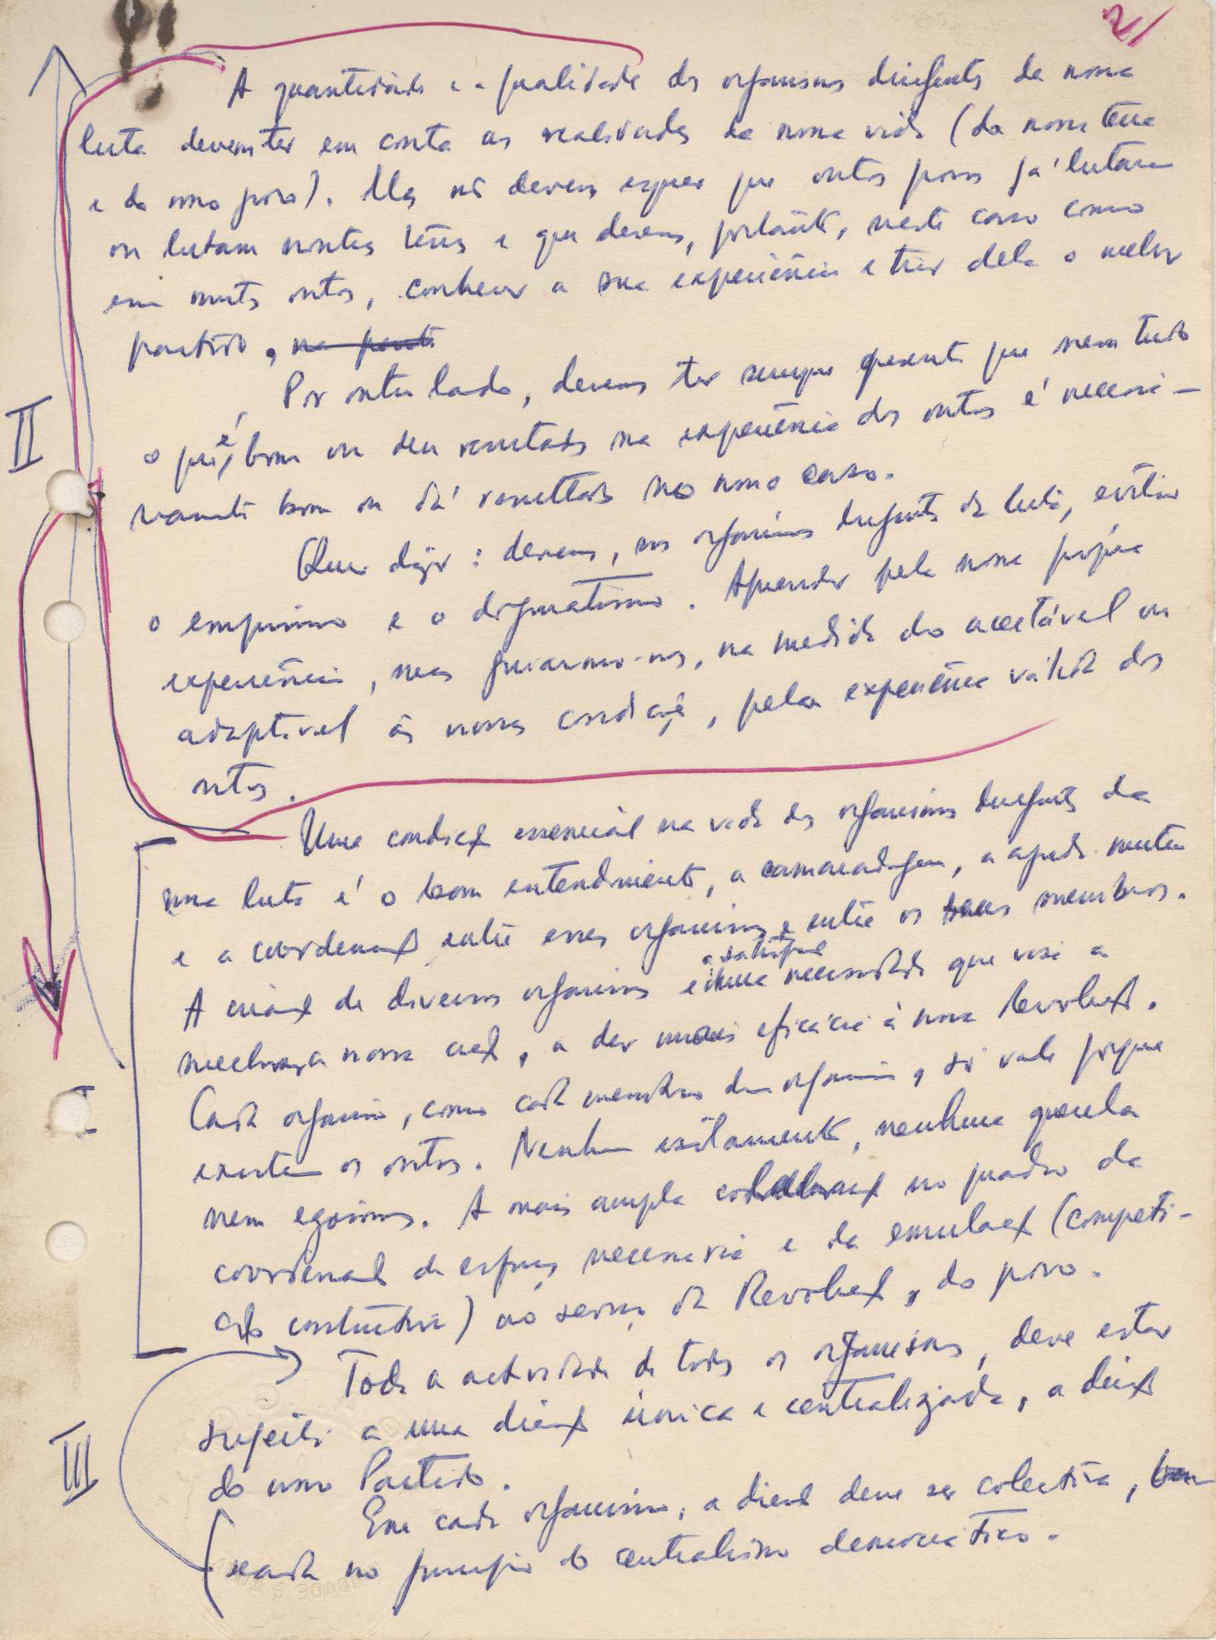 2/
A quantidade e a qualidade dos organismos dirigentes da nossa
luta devem ter em conta as realidades da nossa vida (da nossa terra
e do nosso povo). Mas não devemos esquecer que outros povos já lutaram
ou lutam noutras terras e que devemos, portanto, neste caso como
em muitos outros, conhecer a sua experiência e tirar dela o melhor
partido,
Por outro lado, devemos ter sempre presente que nem tudo
o que é bom ou deu resultados na experiência dos outros é necessa-
riamente bom ou dá resultados no nosso caso.
II
Quer dizer: devemos, nos organismos dirigentes da luta, evitar
o empirismo e o dogmatismo. Aprender pela nossa própria
experiência, mas guiarmo-nos, na medida do aceitável ou
adaptável às nossas condições, pela experiência válida dos
outros.
Uma condição essencial na vida dos organismos dirigentes da
nossa luta é o bom entendimento, a camaradagem, a ajuda mútua
e a coordenação entre esses organismos e entre os seus membros.
A criação de diversos organismos é satisfazer necessidade que visa a
melhorar a nossa acção, a dar mais eficácia à nossa Revolução.
Cada organismo, como cada membro dum organismo, só vale porque
existem os outros. Nenhum isolamento, nenhuma querela
nem egoismos. A mais ampla colaboração no quadro da
coordenação de esforços necessária e da emulação (competi-
ção construtiva) ao serviço da Revolução, do povo.
Toda a actividade de todos os organismos, deve estar
sujeita a uma direcção única e centralizada, a direcção
do nosso Partido.
III
Em cada organismo, a direcção deve ser colectiva,
seada no princípio do centralismo democrático.